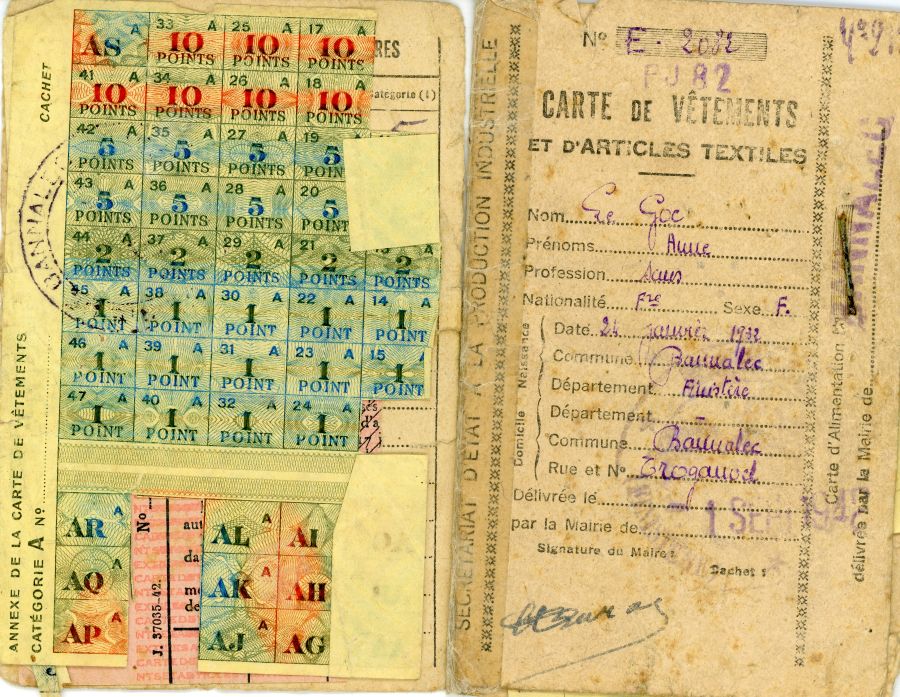 CACHET
ANNEXE DE LA CARTE DE VÊTEMENTS
CATÉGORIE A Nº
AS
33 A 25 A 17
10 10 10
POINTS POINTS POINTS
41 A 34 A 26 A 18
10 10 10 10
POINTS POINTS POINTS POINTS
42 A 35 A 27 19
5 5 5 5
POINTS POINTS POINTS POINT
43 A 36 A 28 A 20
5 5 5 5
POINTS POINTS POINTS POINT
44 A 37 A 29 A 21
2 2 2 2 2
POINTS POINTS POINTS POINTS POINTS
A 38 A 30 A 22 A 14 A
1 1 1 1 1
POINT POINT POINT POINT POINT
46 A 39 A 31 A 23 A 15 A
1 1 1 1 1
POINT POINT POINT POINT POINT
47 A 40 A 32 A 24 A
1 1 1 1
POINT POINT POINT POINT
RES
atégorie (1)
AR A
AQ A
AP A
Nº
J. 37035-42.
aut
da
me
de
AL A AI
AK A AH
AJ AG
SECRÉTARIAT D'ÉTAT A LA PRODUCTION INDUSTRIELLE
Nº E - 2082
PJ 82
CARTE DE VÊTEMENTS
ET D'ARTICLES TEXTILES
Nom Le Goc
Prénoms Anne
Profession sans
Nationalité Fse Sexe F.
Naissance
Date 24 janvier 1922
Commune Bannalec
Département Finistère
Domicile
Département
Commune Bannalec
Rue et Nº
Délivrée le 1 SEP 1942
par la Mairie de
Signature du Maire :
Cachet :
Carte d'Alimentation
délivrée par la Mairie de
BANNALEC